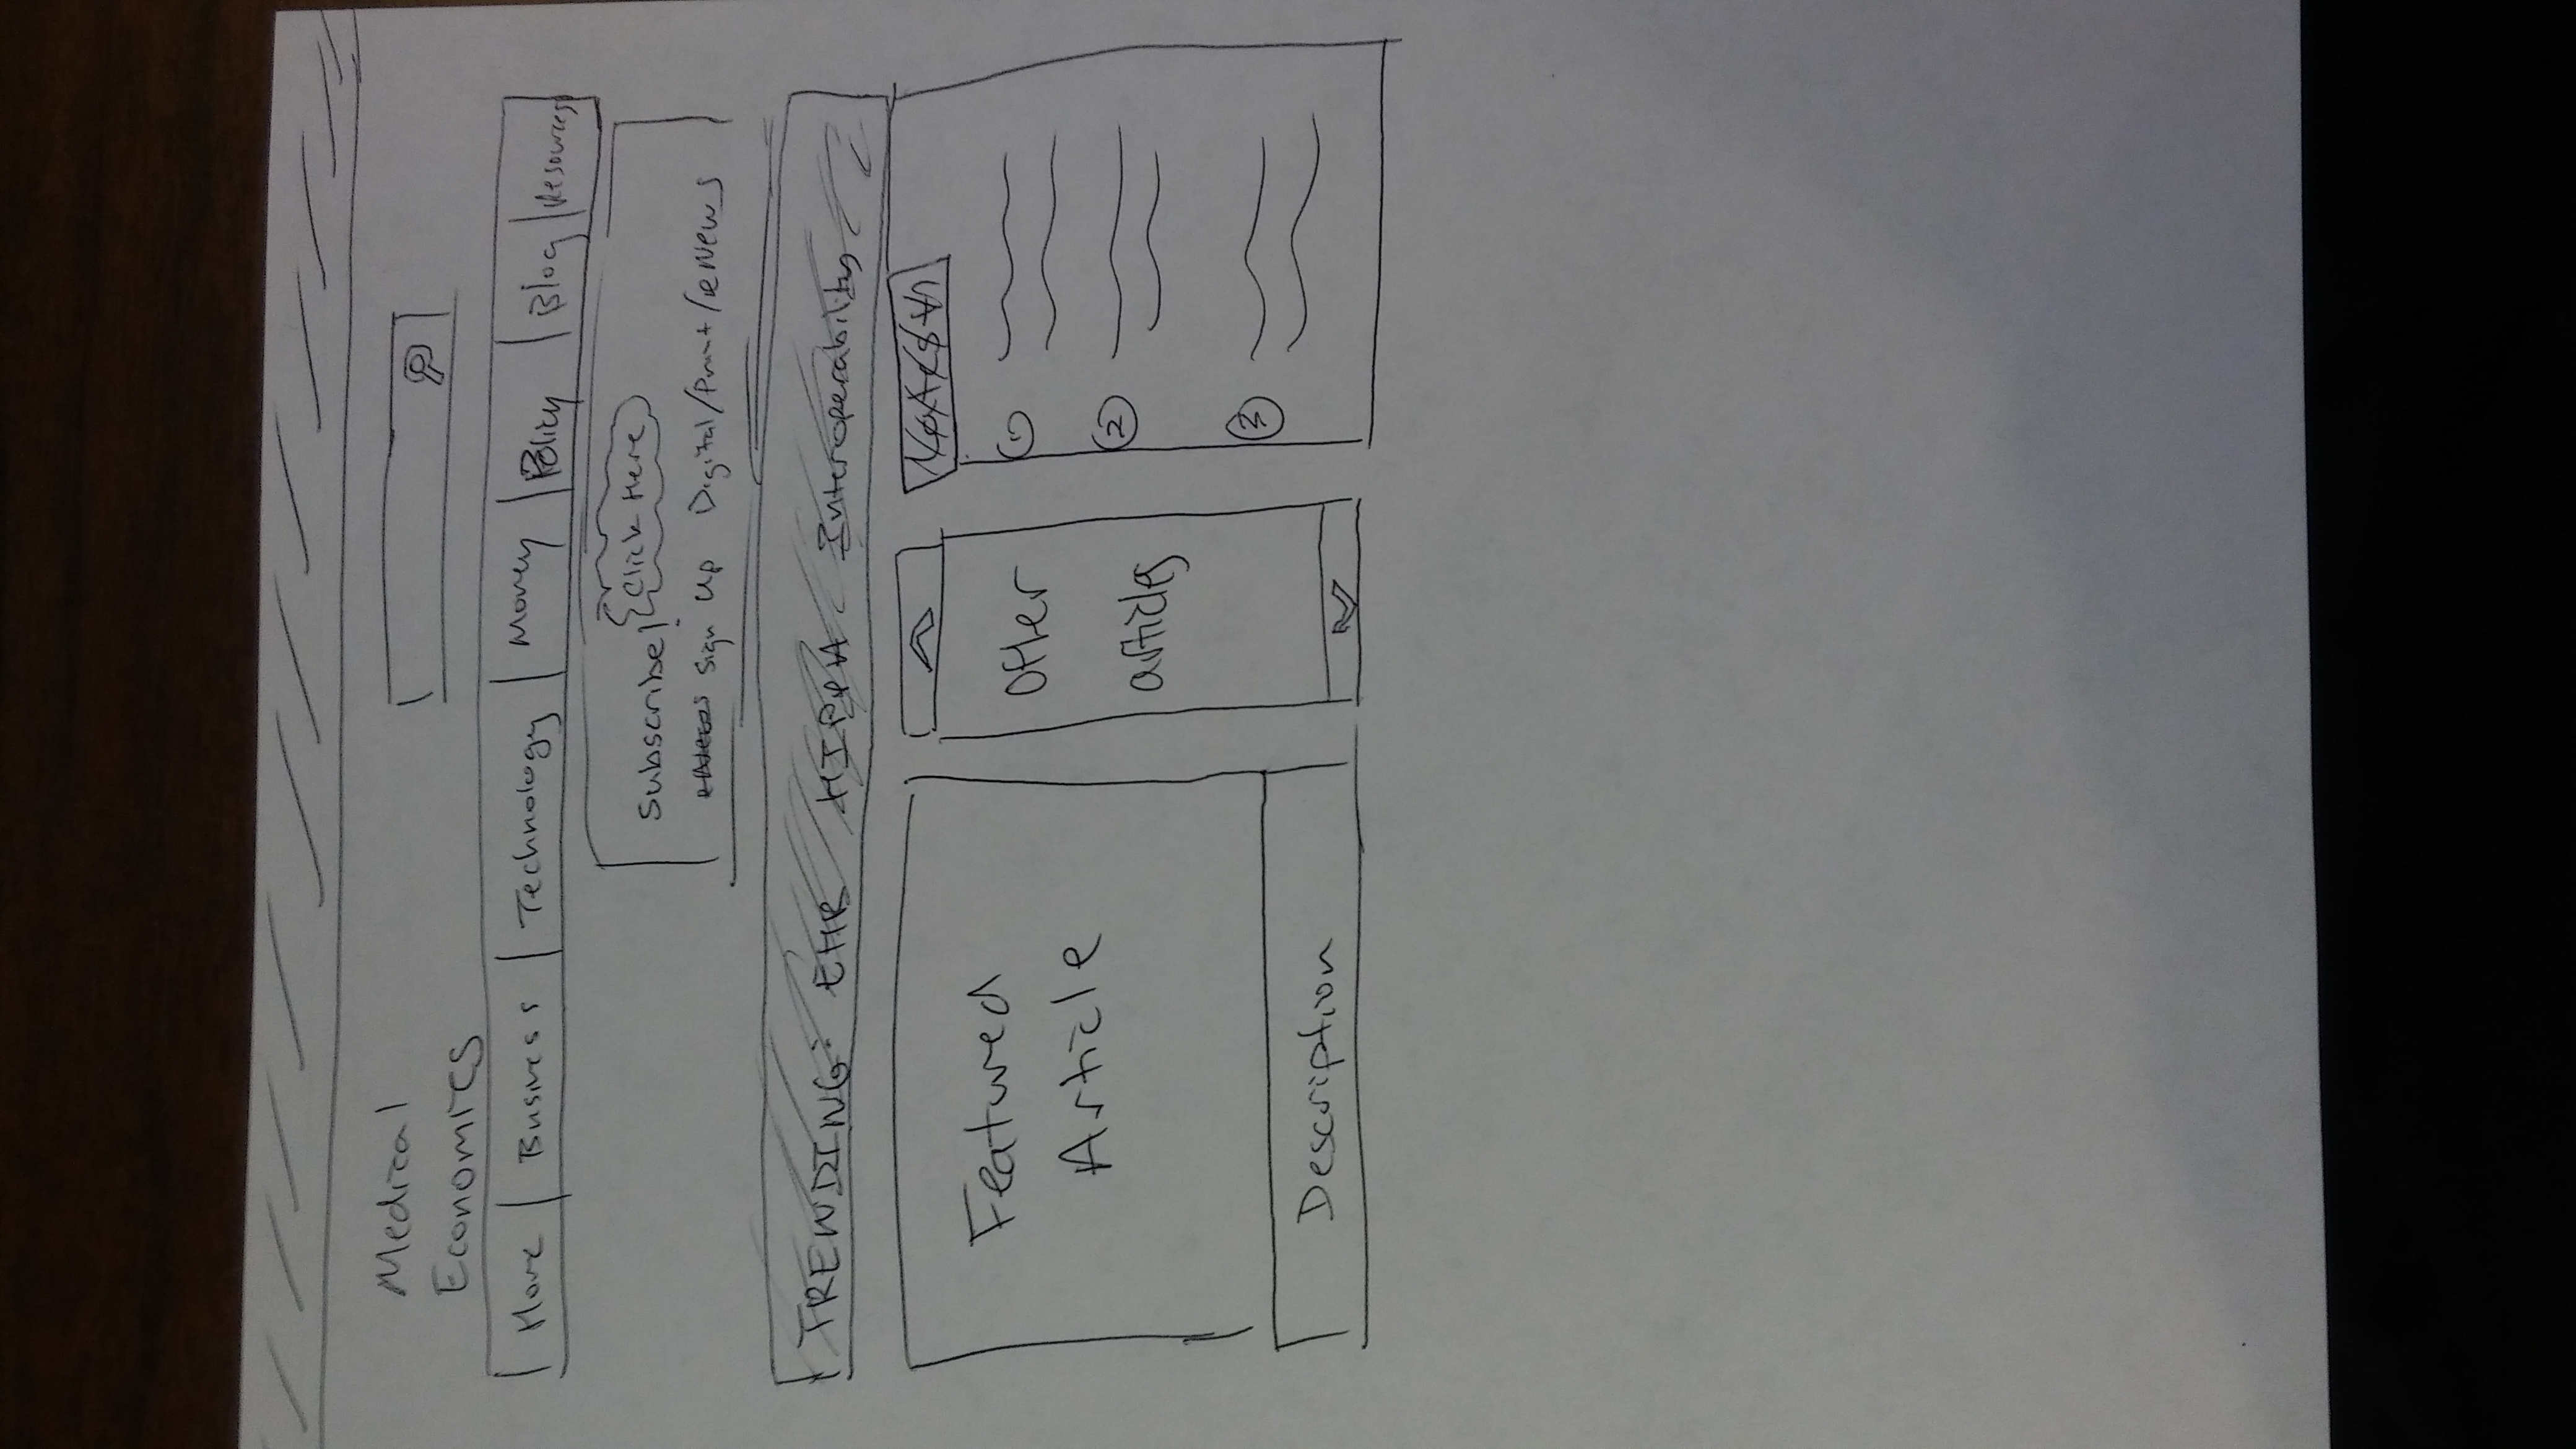 Medical
Economics
Home Business Technology Money Policy Blog Resources
Subscribe! Click Here
Sign Up Digital/Print/eNews
TRENDING: EHR HIPPA Interoperability
Featured
Article
Description
Other
articles
1
2
3